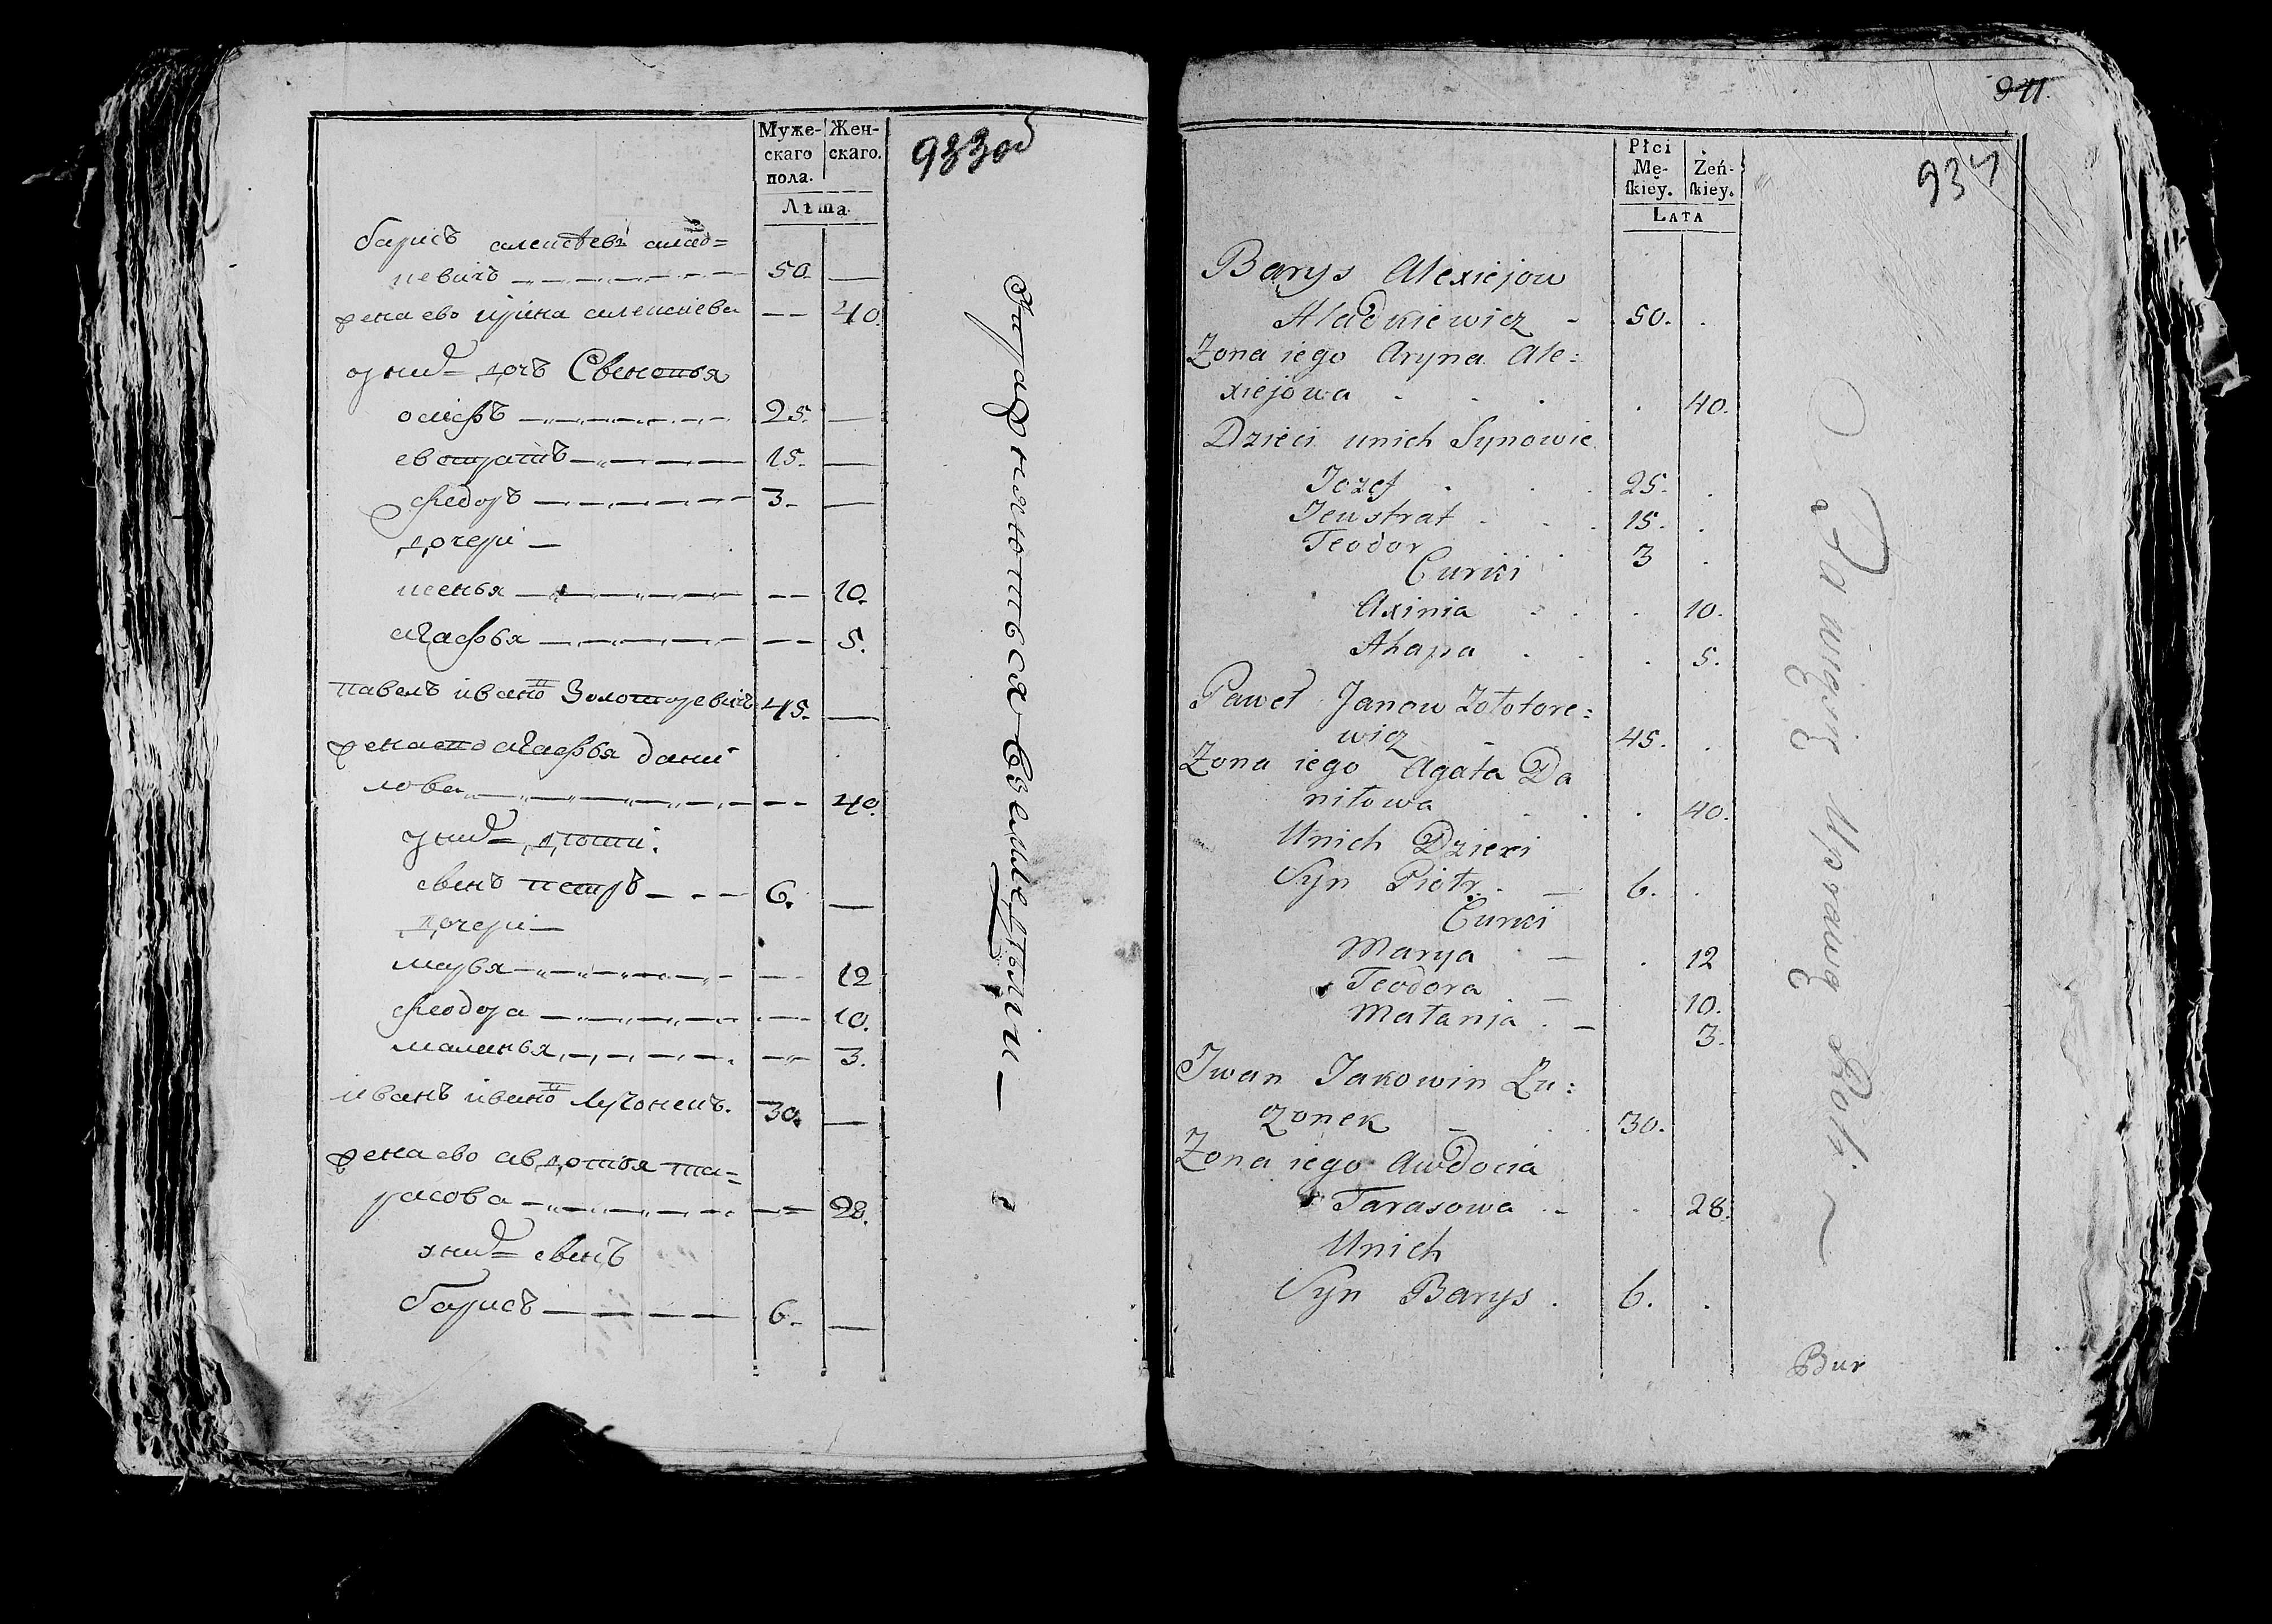 Муже-
скаго
пола.
Жен-
скаго.
Лѣта
933 об
барисъ алексѣевъ алад=
кевичъ 50. —
жена ево ирина алексиева — 40.
у них дети Сыновья
осифъ 25. —
евстратъ 15. —
Федоръ 3. —
дочери —
ксенья — 10.
агафья — 5.
павелъ ивано Золоторевичъ 45. —
жена ево агафья дани
лова — 40.
у них дети:
сынъ петръ 6. —
дочери —
марья — 12
Феодора — 10.
маланья — 3.
иванъ ивано Лучонекъ. 30. —
жена ево авдотья та=
расова — 28.
у них сынъ
барисъ 6. —
Упражняються в земледѣлии —
941.
934
Płci
Mę-
skiey.
Żeń-
skiey.
Lata
Barys Alexiejow
Aladkiewicz - 50. .
Zona iego Aryna Ale:
xiejowa . 40.
Dzieci unich Synowie
Jozef 25. .
Jewstrat 15. .
Teodor 3 .
Curki
Axinia . 10.
Ahapa . 5.
Paweł Janow Zołotore:
wicz 45. .
Zona iego Agata Da
niłowa . 40.
Unich Dzieci
Syn Piotr. — 6. .
Curki
Marya — . 12
Teodora 10.
Małanja . — 3.
Iwan Jakowin Łu:
czonek 30.
Zona iego Awdocia
Tarasowa . 28.
Unich
Syn Barys . 6. .
Bawiącz Uprawą Roli —
Bur